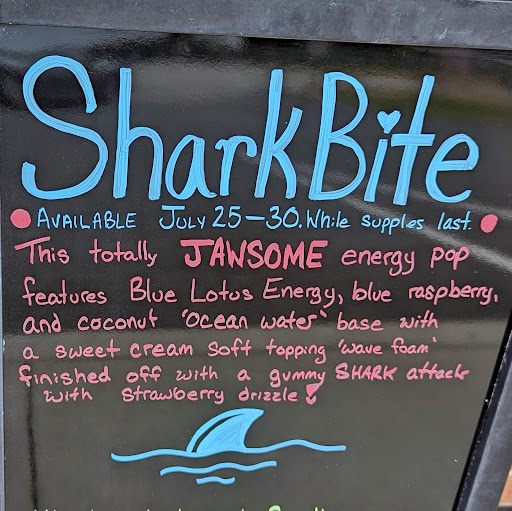 Shark Bite
AVAILABLE JULY 25-30. While supplies last.
This totally JAWSOME energy pop
features Blue Lotus Energy, blue raspberry,
and coconut 'ocean water' base with
a sweet cream soft topping 'wave foam'
finished off with a gummy SHARK attack
with strawberry drizzle!